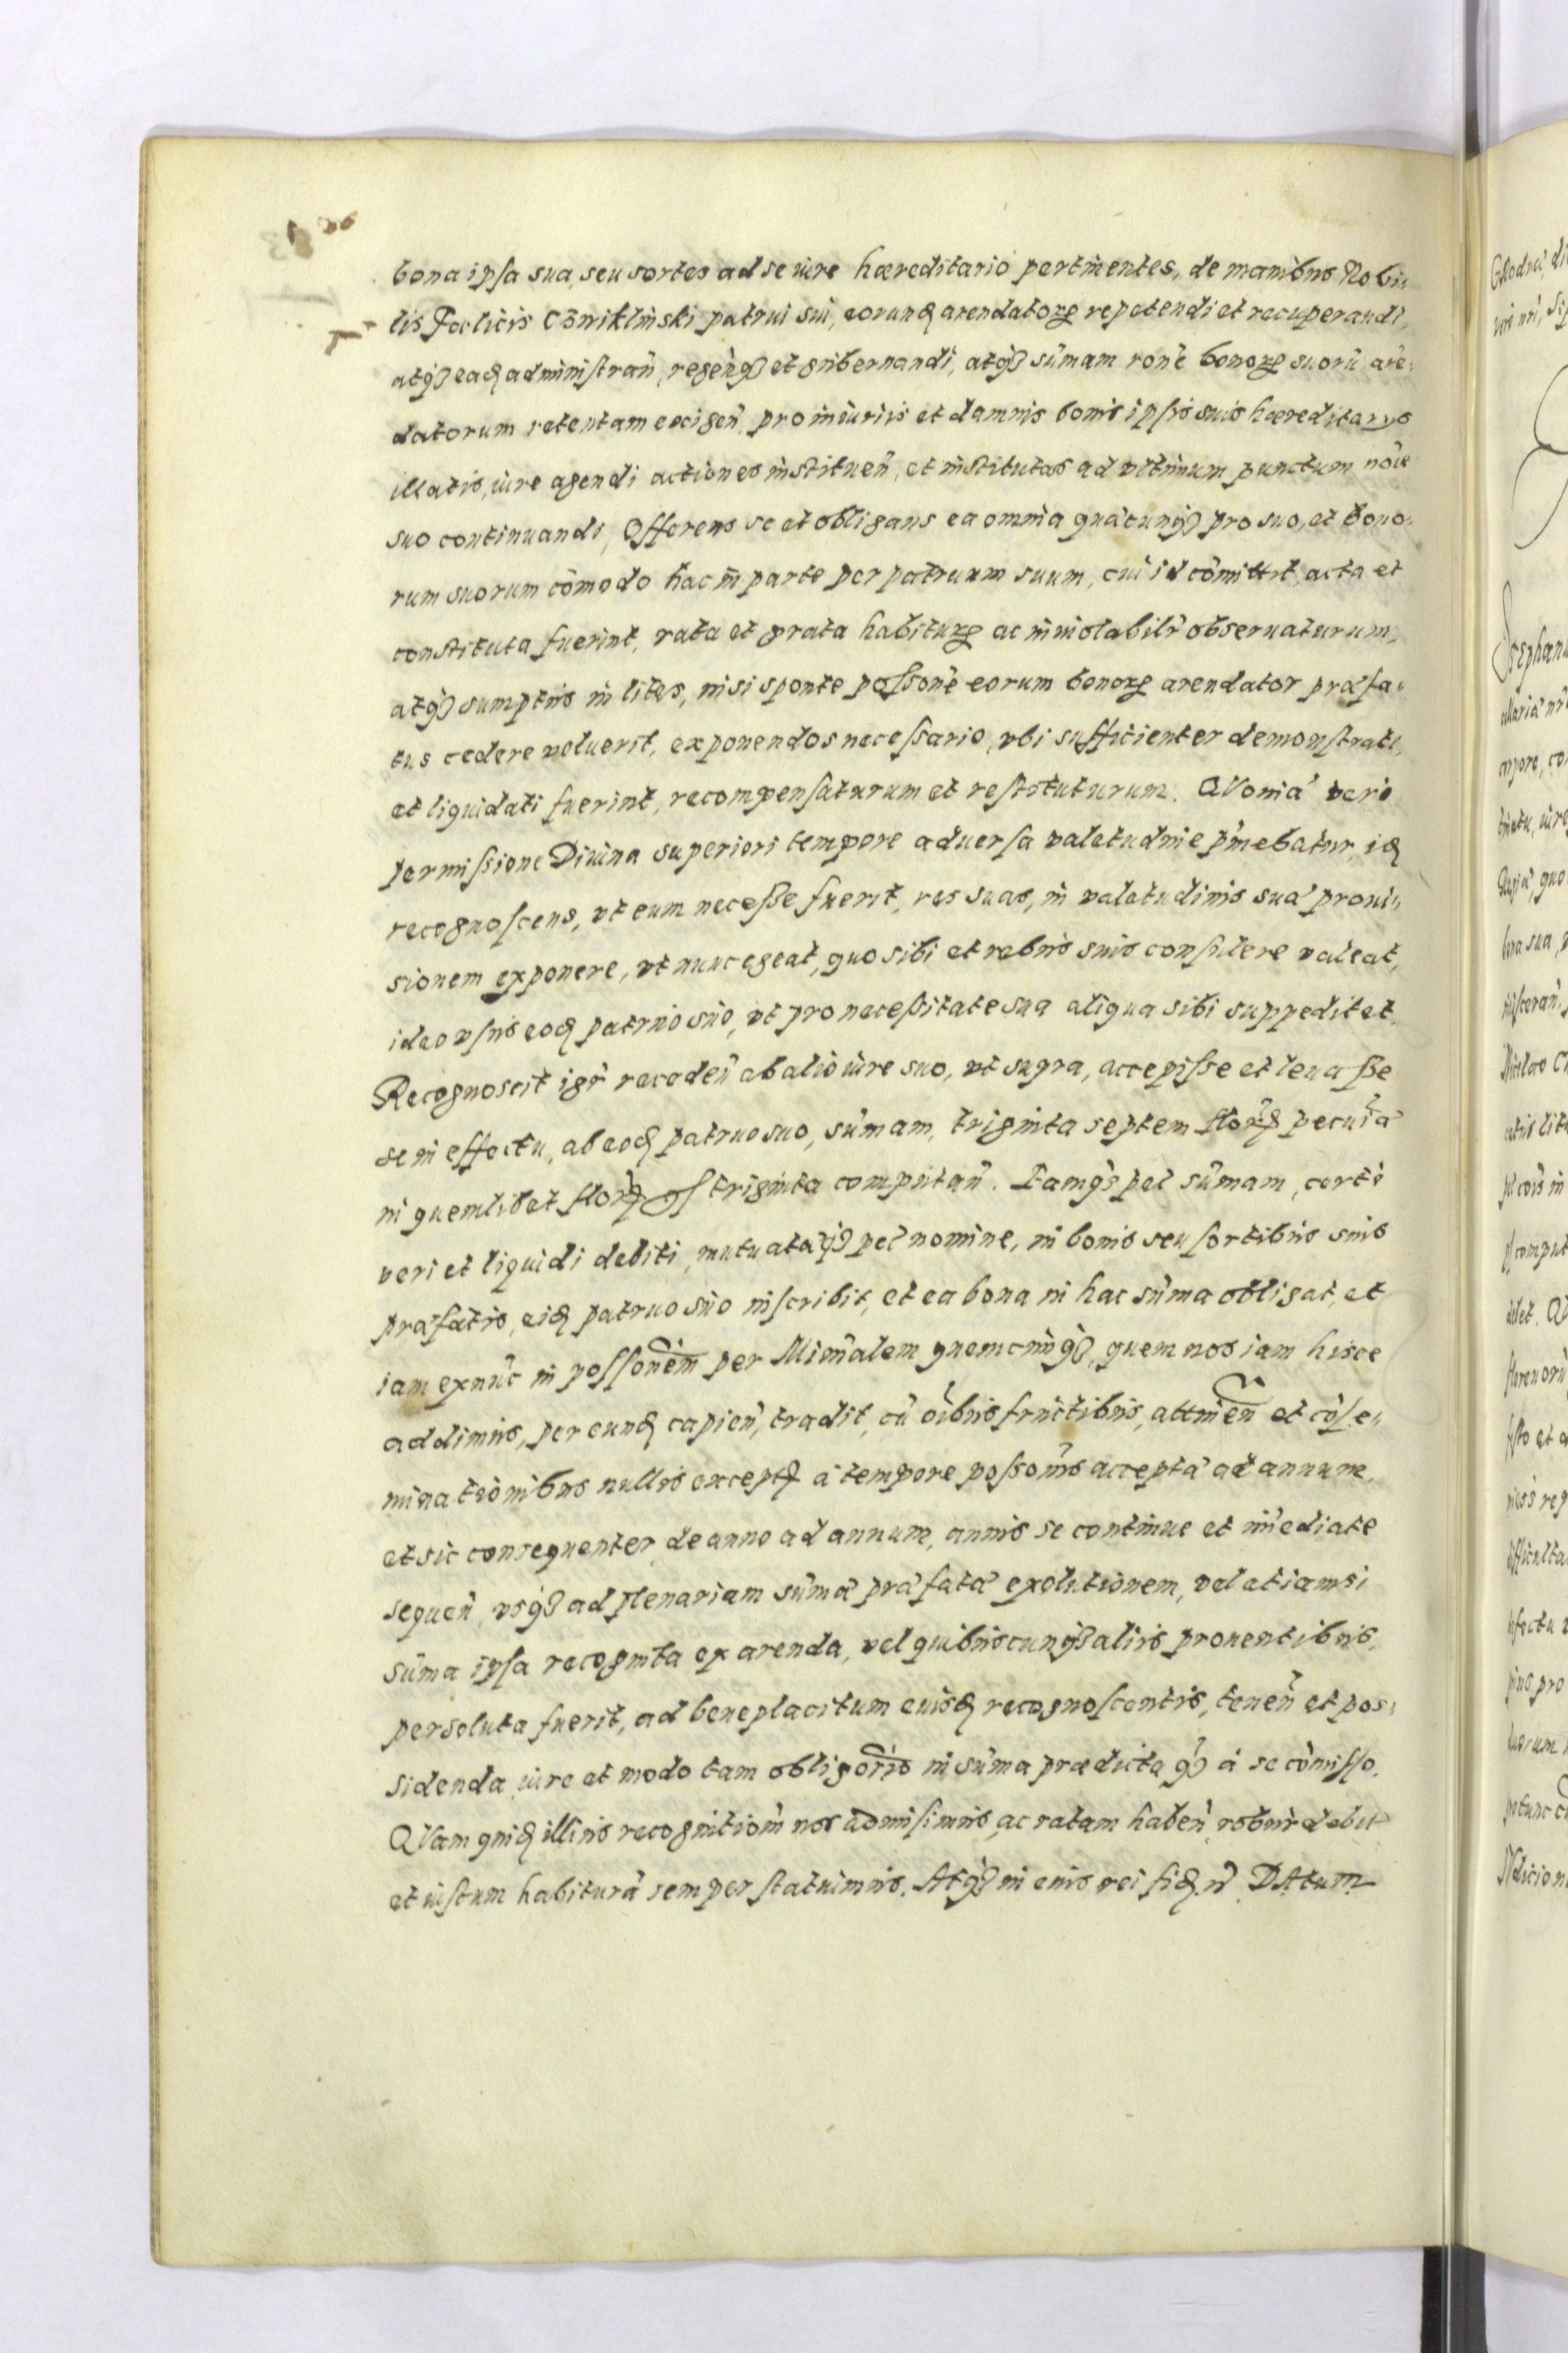 bona ipsa sua, seu sortes ad se iure hæreditario pertinentes, de manibus Nobi„
lis Fœlicis Czriklinski patrui sui, eorundꝫ arendatorꝝ repetendi et recuperandi,
atqꝫ eadꝫ administrañ, regenqꝫ et gubernandi, atqꝫ sum̃am rone bonorꝝ suorũ are„
datorum retentam exigeñ, pro iniuriis et damnis bonis ipsis suis hæreditarys
illatis, iure agendi actiones instituen̄, et institutas ad vltimum punctum noĩe
suo continuandi, Offerens se et obligans ea omnia quæcunqꝫ pro suo, et bono„
rum suorum com̃odo hac in parte per patruum suum, cui id com̃ittit, acta et
constituta fuerint, rata et grata habiturꝝ ac inuiolabilr̃ obseruaturum,
atqꝫ sumptus in lites, nisi sponte possone eorum bonorꝝ arendator præfa„
tus cedere voluerit, exponendos necessario, vbi sufficienter demonstrati,
et liquidati fuerint, recompensaturum et restituturum. QVonia vero
permissione Diuina superiori tempore aduersa valetudine p̃mebatur, idꝫ
recognoscens, vt eum necesse fuerit, res suas, in valetudinis suæ proui„
sionem exponere, vt nunc egeat, quo sibi et rebus suis consulere valeat,
ideo vsus eodꝫ patruo suo, vt pro necessitate sua aliqua sibi suppeditet.
Recognoscit igr̃ recedeñ ab alio iure suo, vt supra, accepisse et leuasse
se in effectu, ab eodꝫ patruo suo, sum̃am, triginta septem florꝫ pecuniæ
in quemlibet florꝫ gſ triginta computañ. Tamqꝫ pec̃ sum̃am, certi
veri et liquidi debiti, mutuatæqꝫ pec̃ nomine, in bonis seu sortibus suis
præfatis, eidꝫ patruo suo inscribit, et ea bona in hac sum̃a obligat, et
iam exnũc in possonem per Minr̃alem quemcunqꝫ, quem nos iam hisce
addimus, per eundꝫ capien̄, tradit, cũ oĩbus fructibus, attinen̄ et cõse„
minationibus nullis exceptꝫ a tempore possonis acceptæ ad annum,
et sic consequenter de anno ad annum, annis se continue et im̃ediate
sequeñ, vsqꝫ ad plenariam sum̃æ præfatæ exolutionem, vel etiamsi
sum̃a ipsa recognita ex arenda, vel quibuscunqꝫ aliis prouentibus,
persoluta fuerit, ad beneplacitum eiusdꝫ recognoscentis, teneñ et pos„
sidenda iure et modo tam obligorio in sum̃a prædicta qꝫ a se com̃isso.
QVam quidꝫ illius recognitionẽ nos admisimus, ac ratam habeñ, robur debit
et iustum habiturã semper statuimus. Atqꝫ in euis rei fidꝫ ñ. DAtum